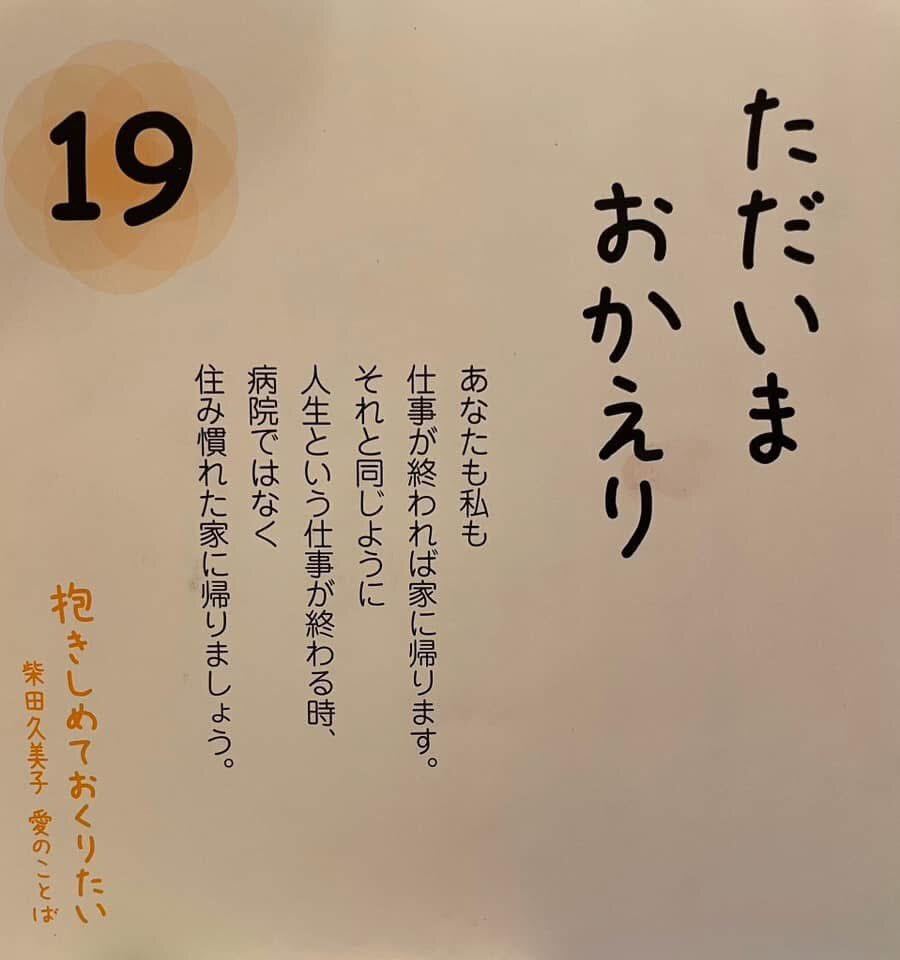 19
ただいま
おかえり
あなたも私も
仕事が終われば家に帰ります。
それと同じように
人生という仕事が終わる時、
病院ではなく
住み慣れた家に帰りましょう。
抱きしめておくりたい
柴田久美子 愛のことば